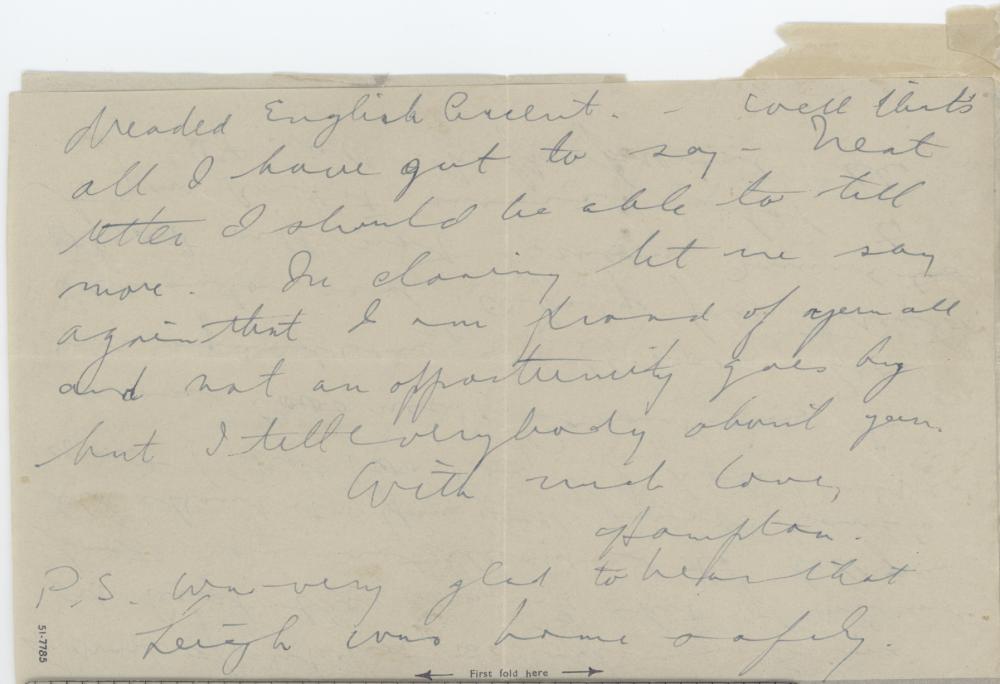 dreaded English Accent. - Well that's
all I have got to say - Next
letter I should be able to tell
more. In closing let me say
again that I am proud of you all
and not an opportunity goes by
but I tell everybody about you.
With much love,
Hampton.
P.S. Was very glad to hear that
Leigh was home safely.
51-7785
First fold here